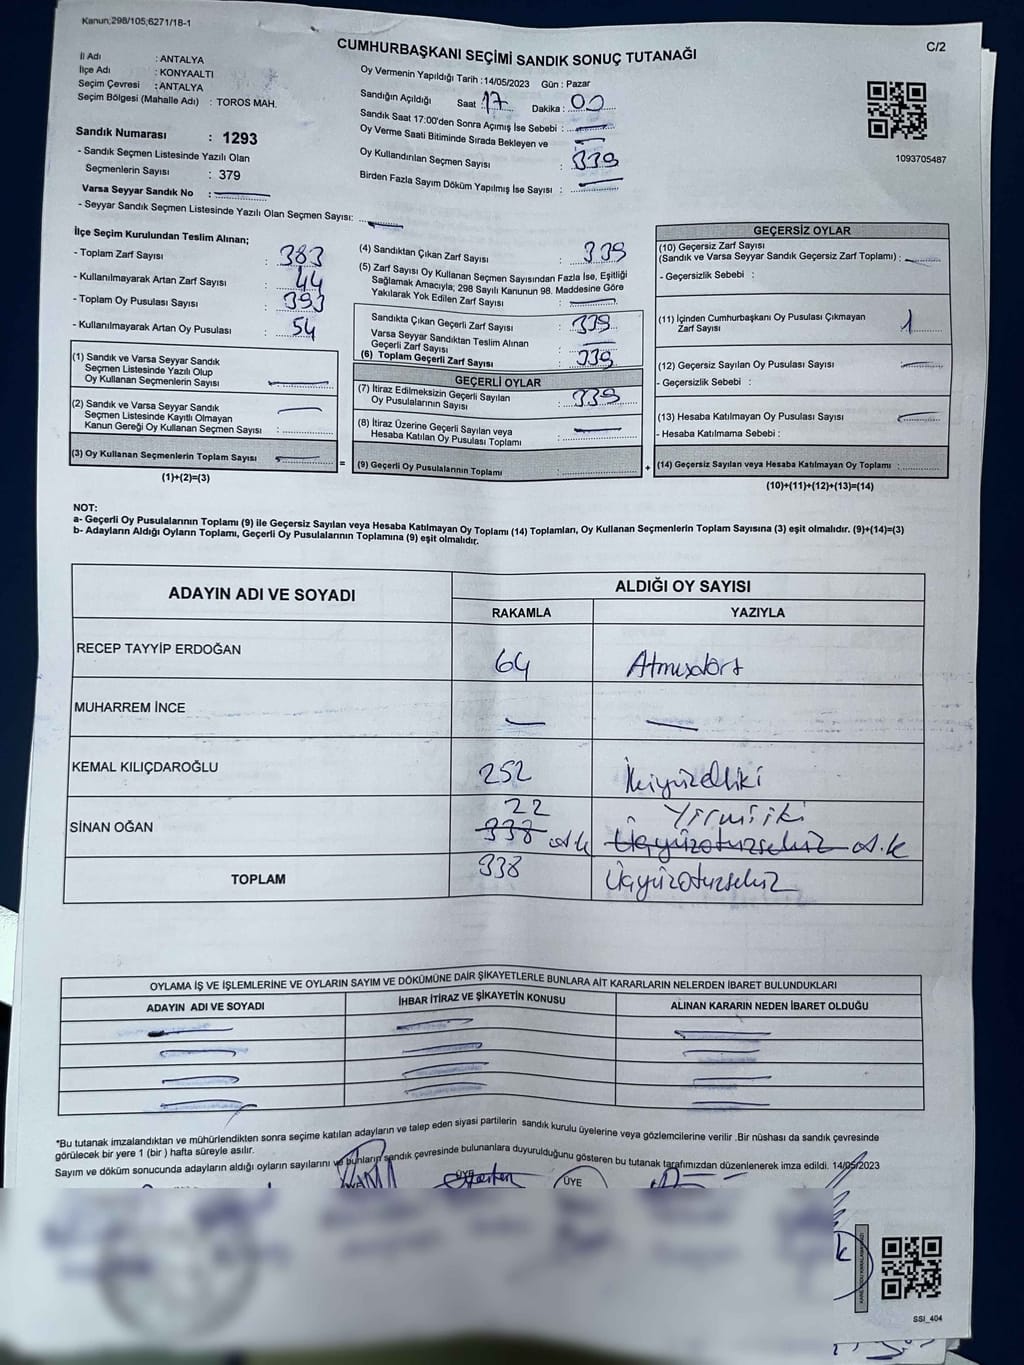 Kanun;298/105;6271/18-1
C/2
CUMHURBAŞKANI SEÇİMİ SANDIK SONUÇ TUTANAĞI
İl Adı : ANTALYA
İlçe Adı : KONYAALTI
Seçim Çevresi : ANTALYA
Seçim Bölgesi (Mahalle Adı) : TOROS MAH.
Sandık Numarası : 1293
- Sandık Seçmen Listesinde Yazılı Olan
Seçmenlerin Sayısı : 379
Varsa Seyyar Sandık No :
- Seyyar Sandık Seçmen Listesinde Yazılı Olan Seçmen Sayısı:
Oy Vermenin Yapıldığı Tarih : 14/05/2023 Gün : Pazar
Sandığın Açıldığı Saat 17 Dakika : 00
Sandık Saat 17:00'den Sonra Açımış İse Sebebi :
Oy Verme Saati Bitiminde Sırada Bekleyen ve
Oy Kullandırılan Seçmen Sayısı : 339
Birden Fazla Sayım Döküm Yapılmış İse Sayısı :
1093705487
İlçe Seçim Kurulundan Teslim Alınan;
- Toplam Zarf Sayısı : 383
- Kullanılmayarak Artan Zarf Sayısı : 44
- Toplam Oy Pusulası Sayısı : 393
- Kullanılmayarak Artan Oy Pusulası : 54
(1) Sandık ve Varsa Seyyar Sandık
Seçmen Listesinde Yazılı Olup
Oy Kullanan Seçmenlerin Sayısı :
(2) Sandık ve Varsa Seyyar Sandık
Seçmen Listesinde Kayıtlı Olmayan
Kanun Gereği Oy Kullanan Seçmen Sayısı :
(3) Oy Kullanan Seçmenlerin Toplam Sayısı :
(1)+(2)=(3)
(4) Sandıktan Çıkan Zarf Sayısı : 339
(5) Zarf Sayısı Oy Kullanan Seçmen Sayısından Fazla İse, Eşitliği
Sağlamak Amacıyla; 298 Sayılı Kanunun 98. Maddesine Göre
Yakılarak Yok Edilen Zarf Sayısı :
Sandıkta Çıkan Geçerli Zarf Sayısı : 339
Varsa Seyyar Sandıktan Teslim Alınan
Geçerli Zarf Sayısı :
(6) Toplam Geçerli Zarf Sayısı : 339
GEÇERLİ OYLAR
(7) İtiraz Edilmeksizin Geçerli Sayılan
Oy Pusulalarının Sayısı : 339
(8) İtiraz Üzerine Geçerli Sayılan veya
Hesaba Katılan Oy Pusulası Toplamı :
= (9) Geçerli Oy Pusulalarının Toplamı : +
GEÇERSİZ OYLAR
(10) Geçersiz Zarf Sayısı
(Sandık ve Varsa Seyyar Sandık Geçersiz Zarf Toplamı) :
- Geçersizlik Sebebi :
(11) İçinden Cumhurbaşkanı Oy Pusulası Çıkmayan
Zarf Sayısı : 1
(12) Geçersiz Sayılan Oy Pusulası Sayısı :
- Geçersizlik Sebebi :
(13) Hesaba Katılmayan Oy Pusulası Sayısı :
- Hesaba Katılmama Sebebi :
(14) Geçersiz Sayılan veya Hesaba Katılmayan Oy Toplamı :
(10)+(11)+(12)+(13)=(14)
NOT:
a- Geçerli Oy Pusulalarının Toplamı (9) ile Geçersiz Sayılan veya Hesaba Katılmayan Oy Toplamı (14) Toplamları, Oy Kullanan Seçmenlerin Toplam Sayısına (3) eşit olmalıdır. (9)+(14)=(3)
b- Adayların Aldığı Oyların Toplamı, Geçerli Oy Pusulalarının Toplamına (9) eşit olmalıdır.
ADAYIN ADI VE SOYADI ALDIĞI OY SAYISI
RAKAMLA YAZIYLA
RECEP TAYYİP ERDOĞAN 64 Atmışdört
MUHARREM İNCE
KEMAL KILIÇDAROĞLU 252 İkiyüzelliki
22 Yirmiiki
SİNAN OĞAN 338 Üçyüzotuzsekiz
TOPLAM 338 Üçyüzotuzsekiz
OYLAMA İŞ VE İŞLEMLERİNE VE OYLARIN SAYIM VE DÖKÜMÜNE DAİR ŞİKAYETLERLE BUNLARA AİT KARARLARIN NELERDEN İBARET BULUNDUKLARI
ADAYIN ADI VE SOYADI İHBAR İTİRAZ VE ŞİKAYETİN KONUSU ALINAN KARARIN NEDEN İBARET OLDUĞU
*Bu tutanak imzalandıktan ve mühürlendikten sonra seçime katılan adayların ve talep eden siyasi partilerin sandık kurulu üyelerine veya gözlemcilerine verilir .Bir nüshası da sandık çevresinde
görülecek bir yere 1 (bir ) hafta süreyle asılır.
Sayım ve döküm sonucunda adayların aldığı oyların sayılarını ve bunların sandık çevresinde bulunanlara duyurulduğunu gösteren bu tutanak tarafımızdan düzenlenerek imza edildi. 14/05/2023
ÜYE ÜYE
SSI_404